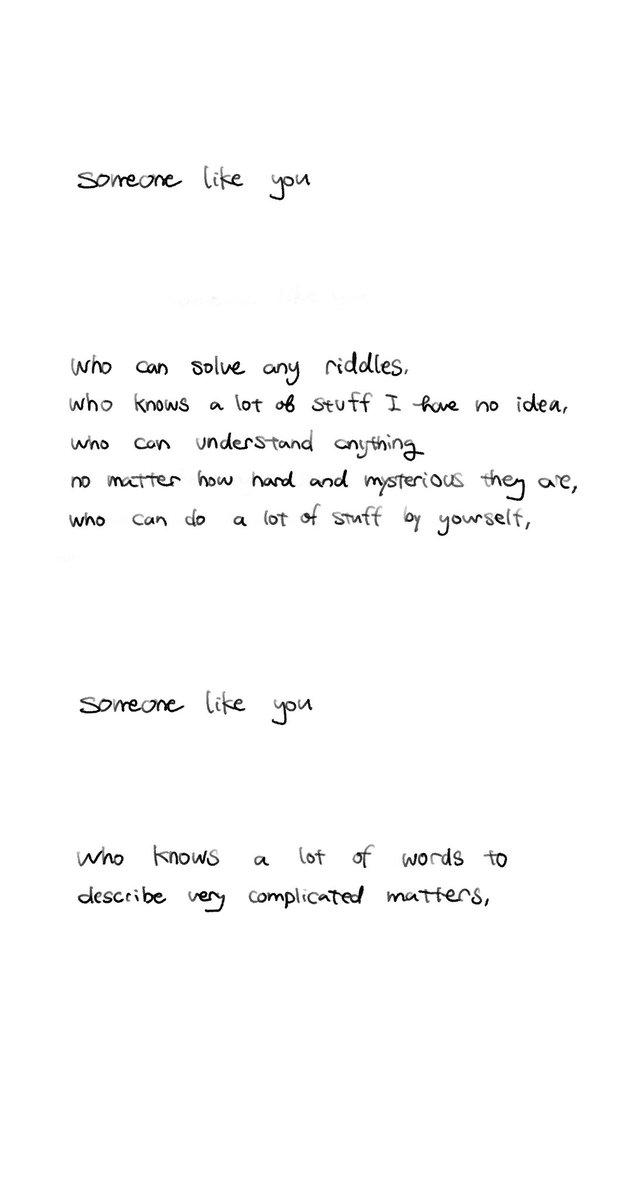 someone like you
someone like you
who can solve any riddles.
who knows a lot of stuff I have no idea,
who can understand anything
no matter how hard and mysterious they are,
who can do a lot of stuff by yourself,
someone like you
who knows a lot of words to
describe very complicated matters,